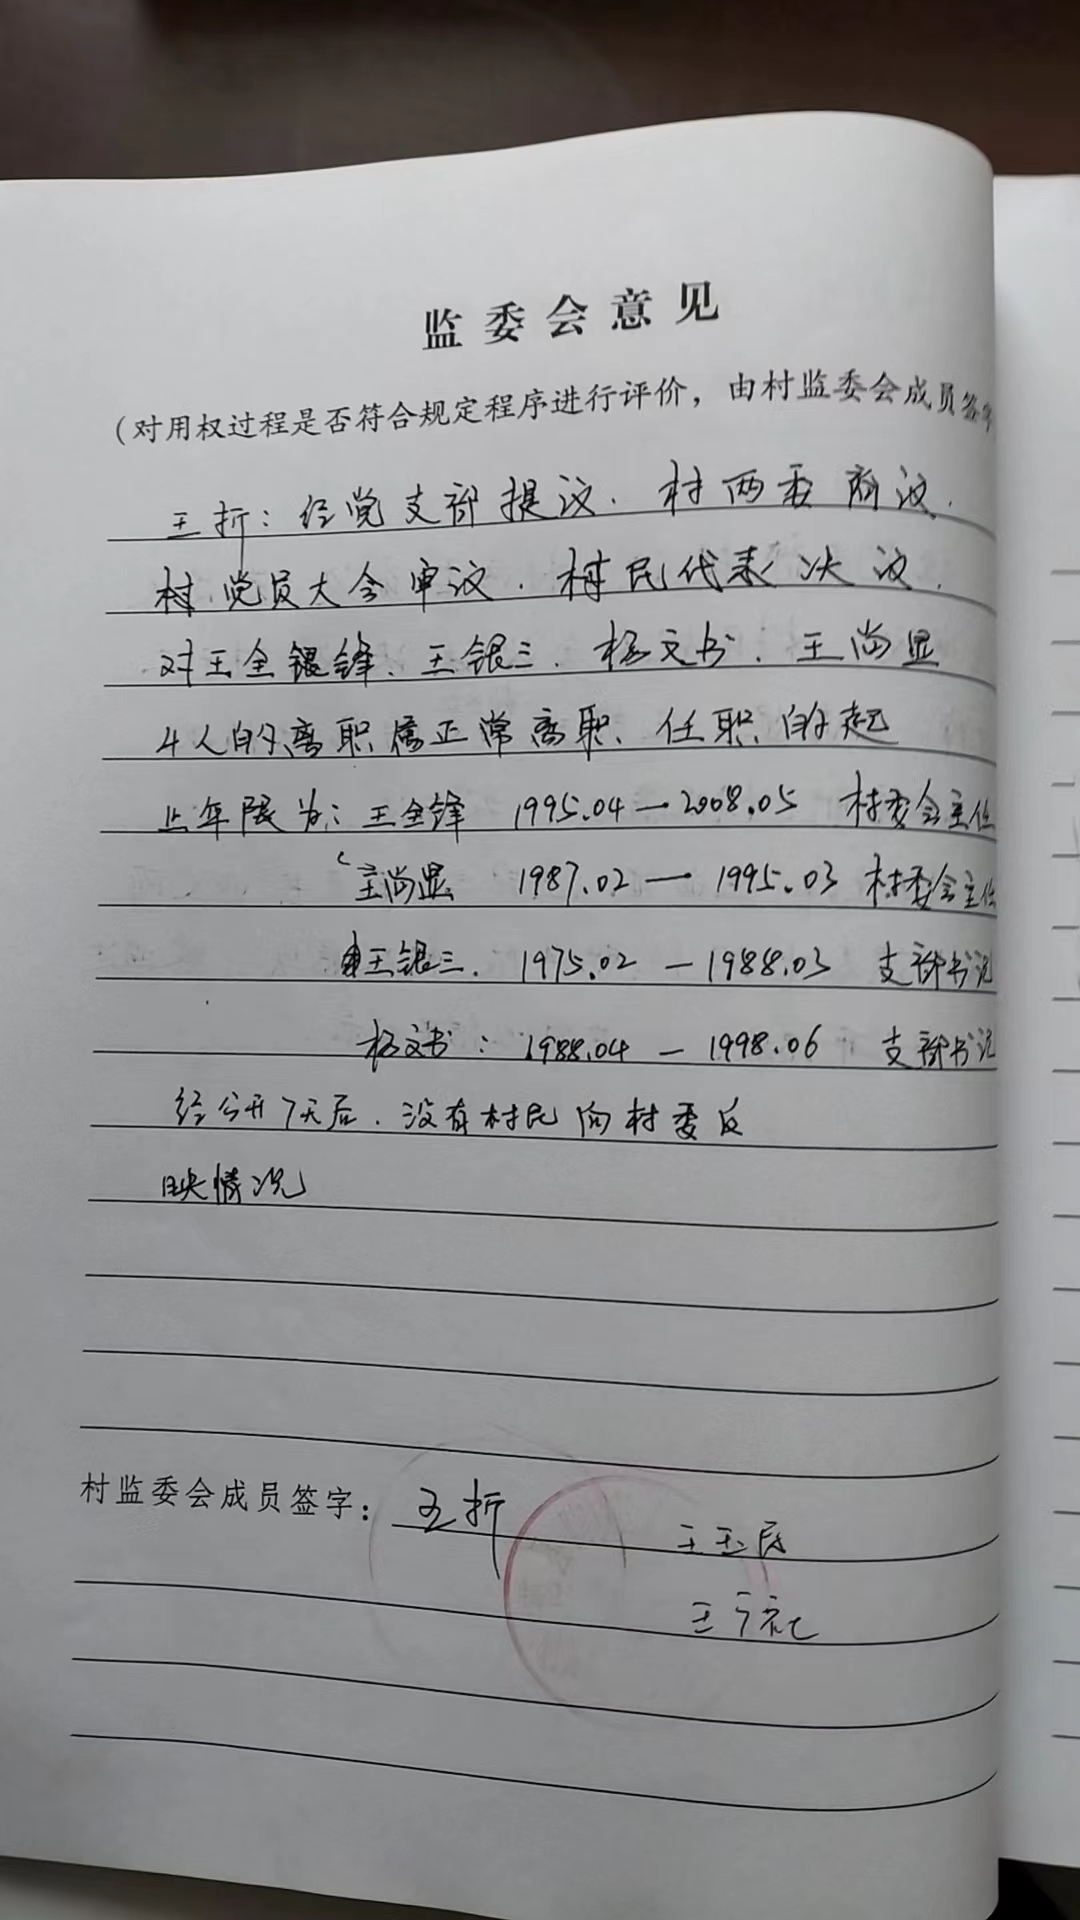 监委会意见
（对用权过程是否符合规定程序进行评价，由村监委会成员签字
王折：经党支部提议．村两委商议．
村党员大会审议．村民代表决议．
对王全银锋、王银三．杨文书．王尚显
4人的离职属正常离职、任职的起
止年限为：王全锋 1995.04—2008.05 村委会主任
王尚显 1987.02—1995.03 村委会主任
王银三． 1975.02—1988.03 支部书记
杨文书： 1988.04—1998.06 支部书记
经公开7天后．没有村民向村委反
映情况
村监委会成员签字：王折 王玉民
王